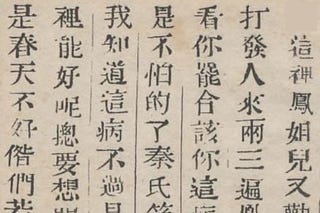 這裡鳳姐兒又勸
打發人來兩三遍鳳
看你罷合該你這
是不怕的了秦氏笑
我知道這病不過是
裡能好呢摠要想
是春天不好偺們若